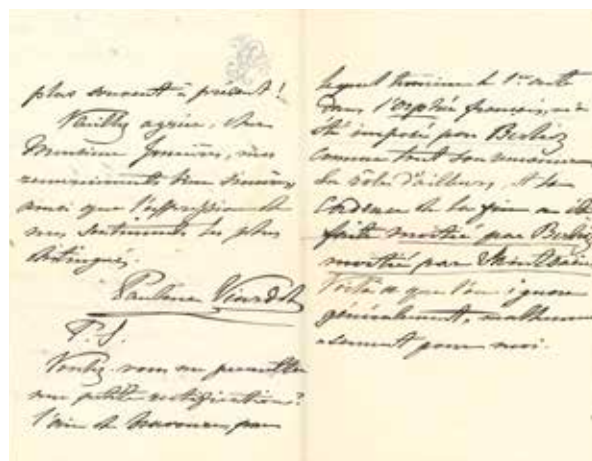 plus souvent à présent !
Veuillez agréer, cher
Monsieur Joncières, mes
remerciements bien sincères
ainsi que l'expression de
mes sentiments les plus
distingués.
Pauline Viardot
P.S.
Voulez-vous me permettre
une petite rectification ?
l'air de bravoure, par
lequel termine le 1er acte
dans l'Orphée français, m'a
été imposé par Berlioz
comme tout son
du rôle d'ailleurs, et la
cadence de la fin a été
faite moitié par Berlioz
moitié par
Voilà ce que l'on ignore
généralement, malheureu
usement pour moi.